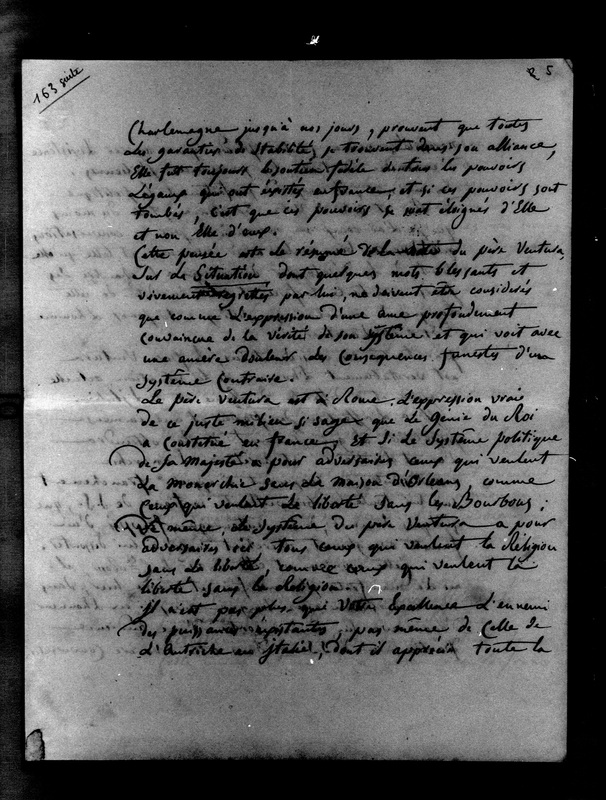 163 suite
5
Charlemagne jusqu'à nos jours, prouvent que toutes
les garanties de stabilité, se trouvent dans son alliance,
Elle fut toujours le soutien fidèle de tous les pouvoirs
Légaux qui ont existés en france, et si ces pouvoirs sont
tombés, c'est que ces pouvoirs se sont éloignés d'Elle
et non Elle d'eux.
Cette pensée est le résumé de la du père Ventura,
Sur la Situation dont quelques mots blessants et
vivement regrettés par lui, ne doivent être considérés
que comme l'expression d'une ame profondement
convaincue de la vérité de son système et qui voit avec
une amère douleur les consequences funestes d'un
système contraire.
Le père Ventura est à Rome, l'expression vraie
de ce juste milieu si sage que le génie du Roi
a constitué en france, Et si le Système politique
de Sa Majesté a pour adversaires ceux qui veulent
la Monarchie sans la Maison d'Orléans, comme
ceux qui veulent la liberté sans les Bourbons;
De même, le système du père Ventura a pour
adversaires ici tous ceux qui veulent la Réligion
sans la liberté, comme ceux qui veulent la
liberté sans la Réligion.
Il n'est pas plus que Votre Excellence L'ennemi
des puissances existantes, pas même de Celle de
L'Autriche en Italie, dont il apprécie toute la